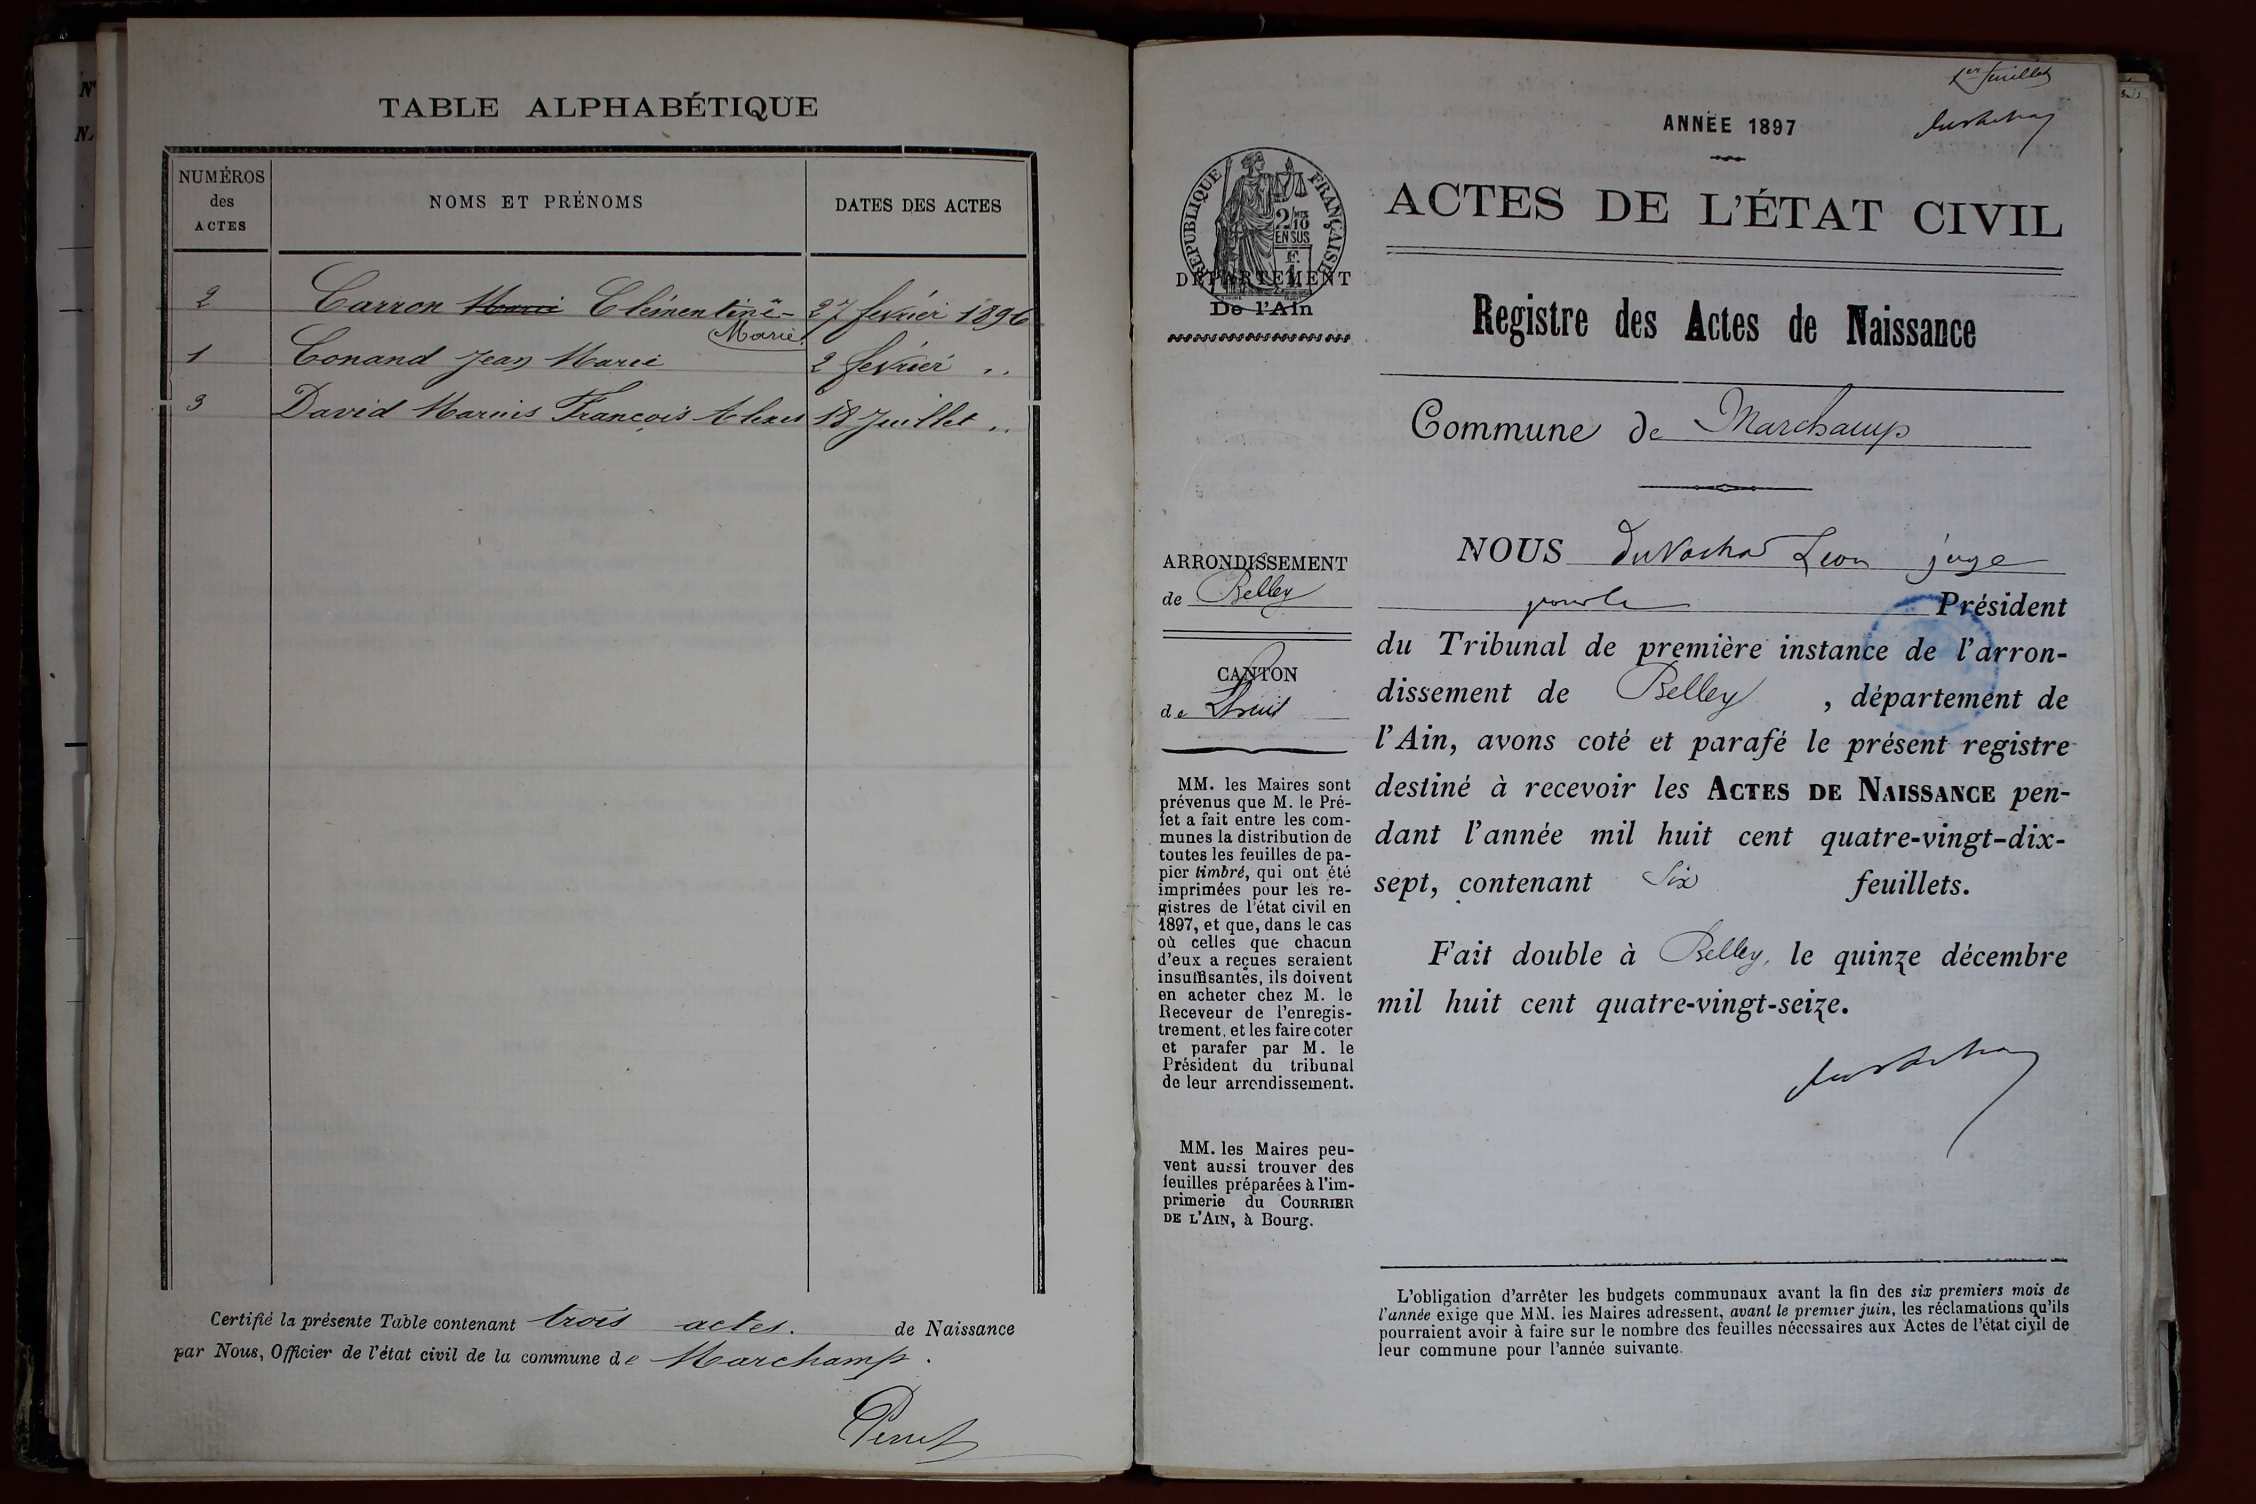 TABLE ALPHABÉTIQUE
NUMÉROS
des
ACTES
NOMS ET PRÉNOMS
DATES DES ACTES
2 Carron Marie Clémentine 27 février 1896
Marie
1 Conand Jean Marie 2 février ..
3 David Marius François Alexis 18 Juillet ..
Certifié la présente Table contenant trois actes. de Naissance
par Nous, Officier de l'état civil de la commune de Marchamp.
Perret
1er feuillet
ANNÉE 1897
RÉPUBLIQUE FRANÇAISE
2/10
EN SUS
DÉPARTEMENT
De l'Ain
ACTES DE L'ÉTAT CIVIL
Registre des Actes de Naissance
Commune de Marchamp
ARRONDISSEMENT
de Belley
CANTON
de
MM. les Maires sont
prévenus que M. le Pré-
fet a fait entre les com-
munes la distribution de
toutes les feuilles de pa-
pier timbré, qui ont été
imprimées pour les re-
gistres de l'état civil en
1897, et que, dans le cas
où celles que chacun
d'eux a reçues seraient
insuffisantes, ils doivent
en acheter chez M. le
Receveur de l'enregis-
trement, et les faire coter
et parafer par M. le
Président du tribunal
de leur arrondissement.
MM. les Maires peu-
vent aussi trouver des
feuilles préparées à l'im-
primerie du COURRIER
DE L'AIN, à Bourg.
NOUS Léon juge
pour le Président
du Tribunal de première instance de l'arron-
dissement de Belley , département de
l'Ain, avons coté et parafé le présent registre
destiné à recevoir les ACTES DE NAISSANCE pen-
dant l'année mil huit cent quatre-vingt-dix-
sept, contenant Six feuillets.
Fait double à Belley, le quinze décembre
mil huit cent quatre-vingt-seize.
L'obligation d'arrêter les budgets communaux avant la fin des six premiers mois de
l'année exige que MM. les Maires adressent, avant le premier juin, les réclamations qu'ils
pourraient avoir à faire sur le nombre des feuilles nécessaires aux Actes de l'état civil de
leur commune pour l'année suivante.